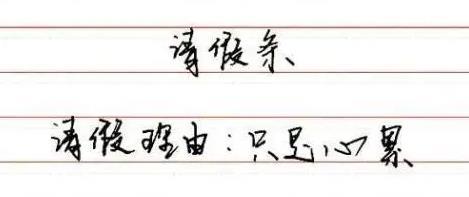 请假条
请假理由：只是心累